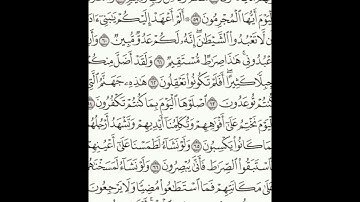 ٱلْيَوْمَ أَيُّهَا ٱلْمُجْرِمُونَ ٥٩ ۞ أَلَمْ أَعْهَدْ إِلَيْكُمْ يَٰبَنِىٓ
أَن لَّا تَعْبُدُوا۟ ٱلشَّيْطَٰنَ ۖ إِنَّهُۥ لَكُمْ عَدُوٌّ مُّبِينٌ ٦٠ وَأَنِ
ٱعْبُدُونِى ۚ هَٰذَا صِرَٰطٌ مُّسْتَقِيمٌ ٦١ وَلَقَدْ أَضَلَّ مِنكُمْ
جِبِلًّا كَثِيرًا ۖ أَفَلَمْ تَكُونُوا۟ تَعْقِلُونَ ٦٢ هَٰذِهِۦ جَهَنَّمُ ٱلَّتِى
كُنتُمْ تُوعَدُونَ ٦٣ ٱصْلَوْهَا ٱلْيَوْمَ بِمَا كُنتُمْ تَكْفُرُونَ ٦٤
ٱلْيَوْمَ نَخْتِمُ عَلَىٰٓ أَفْوَٰهِهِمْ وَتُكَلِّمُنَآ أَيْدِيهِمْ وَتَشْهَدُ أَرْجُلُهُم
بِمَا كَانُوا۟ يَكْسِبُونَ ٦٥ وَلَوْ نَشَآءُ لَطَمَسْنَا عَلَىٰٓ أَعْيُنِهِمْ
فَٱسْتَبَقُوا۟ ٱلصِّرَٰطَ فَأَنَّىٰ يُبْصِرُونَ ٦٦ وَلَوْ نَشَآءُ لَمَسَخْنَٰهُمْ
عَلَىٰ مَكَانَتِهِمْ فَمَا ٱسْتَطَٰعُوا۟ مُضِيًّا وَلَا يَرْجِعُونَ